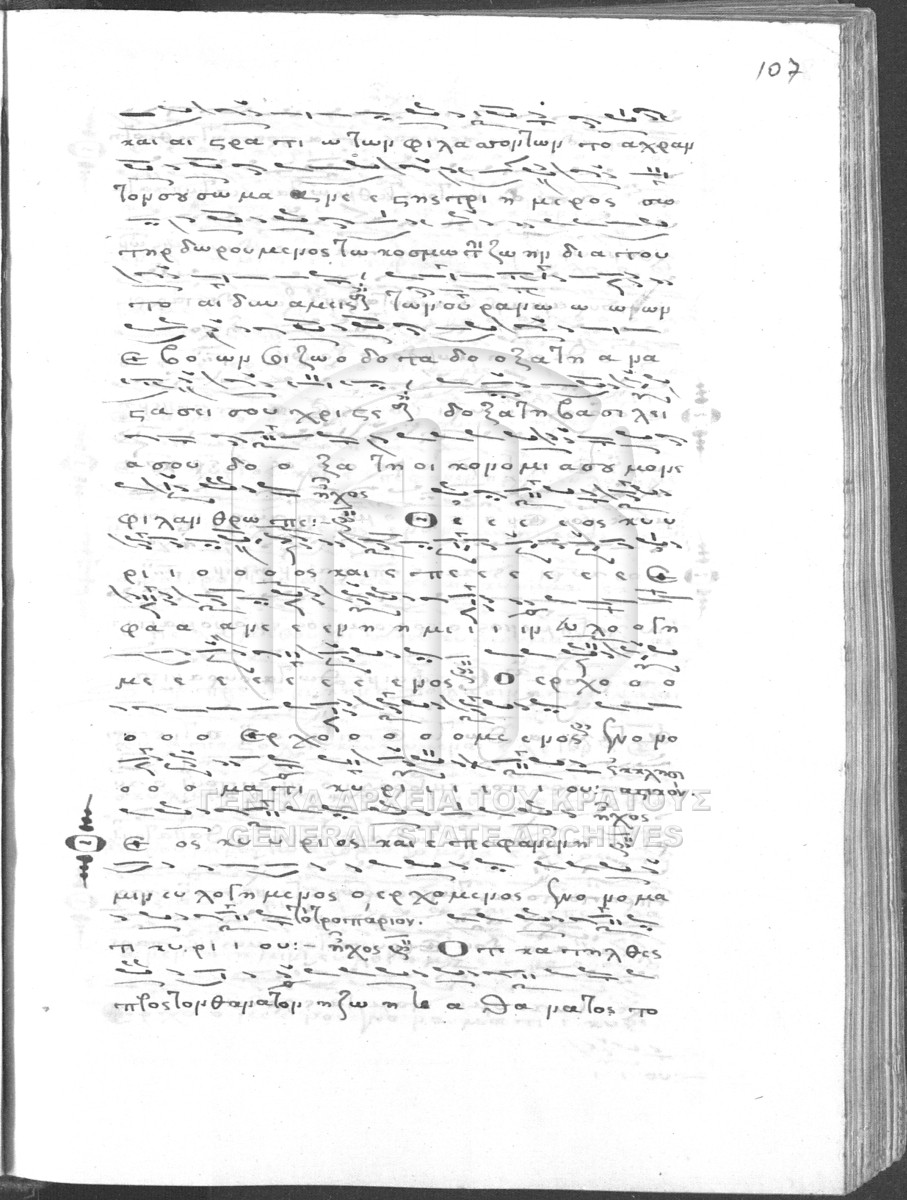 107
και αι ϛρα τι ω των φι λα ατον των το α χραν
τον σου σω μα α νε ε ϛης τρι η με ρος σω
τηρ δω ρου με νος τω κοσ μω τη ζω ην δι α του
το αι δυν α μεις των ου ρα νω ω ω νων
ε βο ων σι ζω ο δο τα δο ο ξα τη α να
ϛα σει σου χρι ϛε δο ξα τη βα σι λει
α σου δο ο ξα τη οι κο νο μι α σου μο νε
φι λαν θρω πε :~ ἦχος ε ε ε ε ος κυ υ
ρι ι ο ο ο ος και ε πε ε ε ε ε ε ε
φα α α νε ε εν η η μι ι ι ιν ευ λο ο γη
με ε ε ε ε ε ε ε νος ο ερ χο ο ο
ο ο ο ερ χο ο ο ο ο με ε νος νο νο
ο ο ο μα τι κυ ρι ι ι ι ι ου :~
ἦχος
ε ος κυ υ ρι ος και ε πε φα νεν η
μιν ευ λο γη με νος ο ερ χο με νος νο νο μα
τι κυ ρι ι ου :~ το τροπάριον. ἦχος ο τε κα τηλ θες
προς τον θανατον η ζω η α θα να τος το
ΓΕΝΙΚΑ ΑΡΧΕΙΑ ΤΟΥ ΚΡΑΤΟΥΣ
GENERAL STATE ARCHIVES